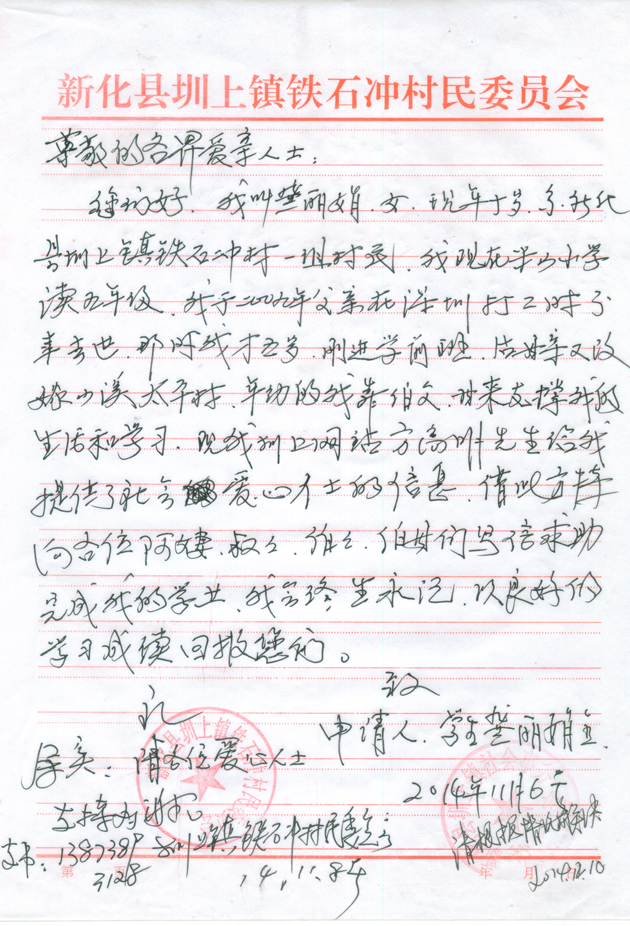 新化县圳上镇铁石冲村民委员会
尊敬的各界爱亲人士:
您们好.我叫龚丽娟.女.现年十岁.系新化
县圳上镇铁石冲村一组村民.我现在半山小学
读五年级.我于二00九年父亲在深圳打工时不
幸去世.那时我才五岁.刚进学前班.后母亲又改
嫁小溪太平村.年幼的我靠伯父.母来支撑我的
生活和学习.现我圳上网站方高叶先生给我
提供了社会爱心人士的信息.借此方择
向各位阿婕.叔々.伯々.伯母们写信求助
完成我的学业.我会终生永记.以良好的
学习成绩回报您们。
致
礼
申请人.学生龚丽娟
属实:请各位爱心人士
2014年11月6号
支持为谢
圳上镇铁石冲村民委会
支书:
14.11.8号
2014.12.10
第
年 月